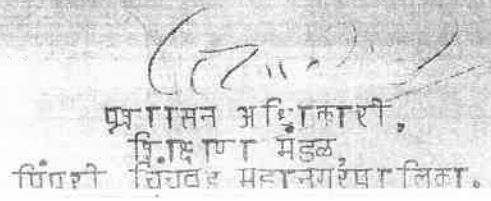 प्रशासन अधिकारी,
शिक्षण मंडळ,
पिंपरी चिंचवड महानगरपालिका.